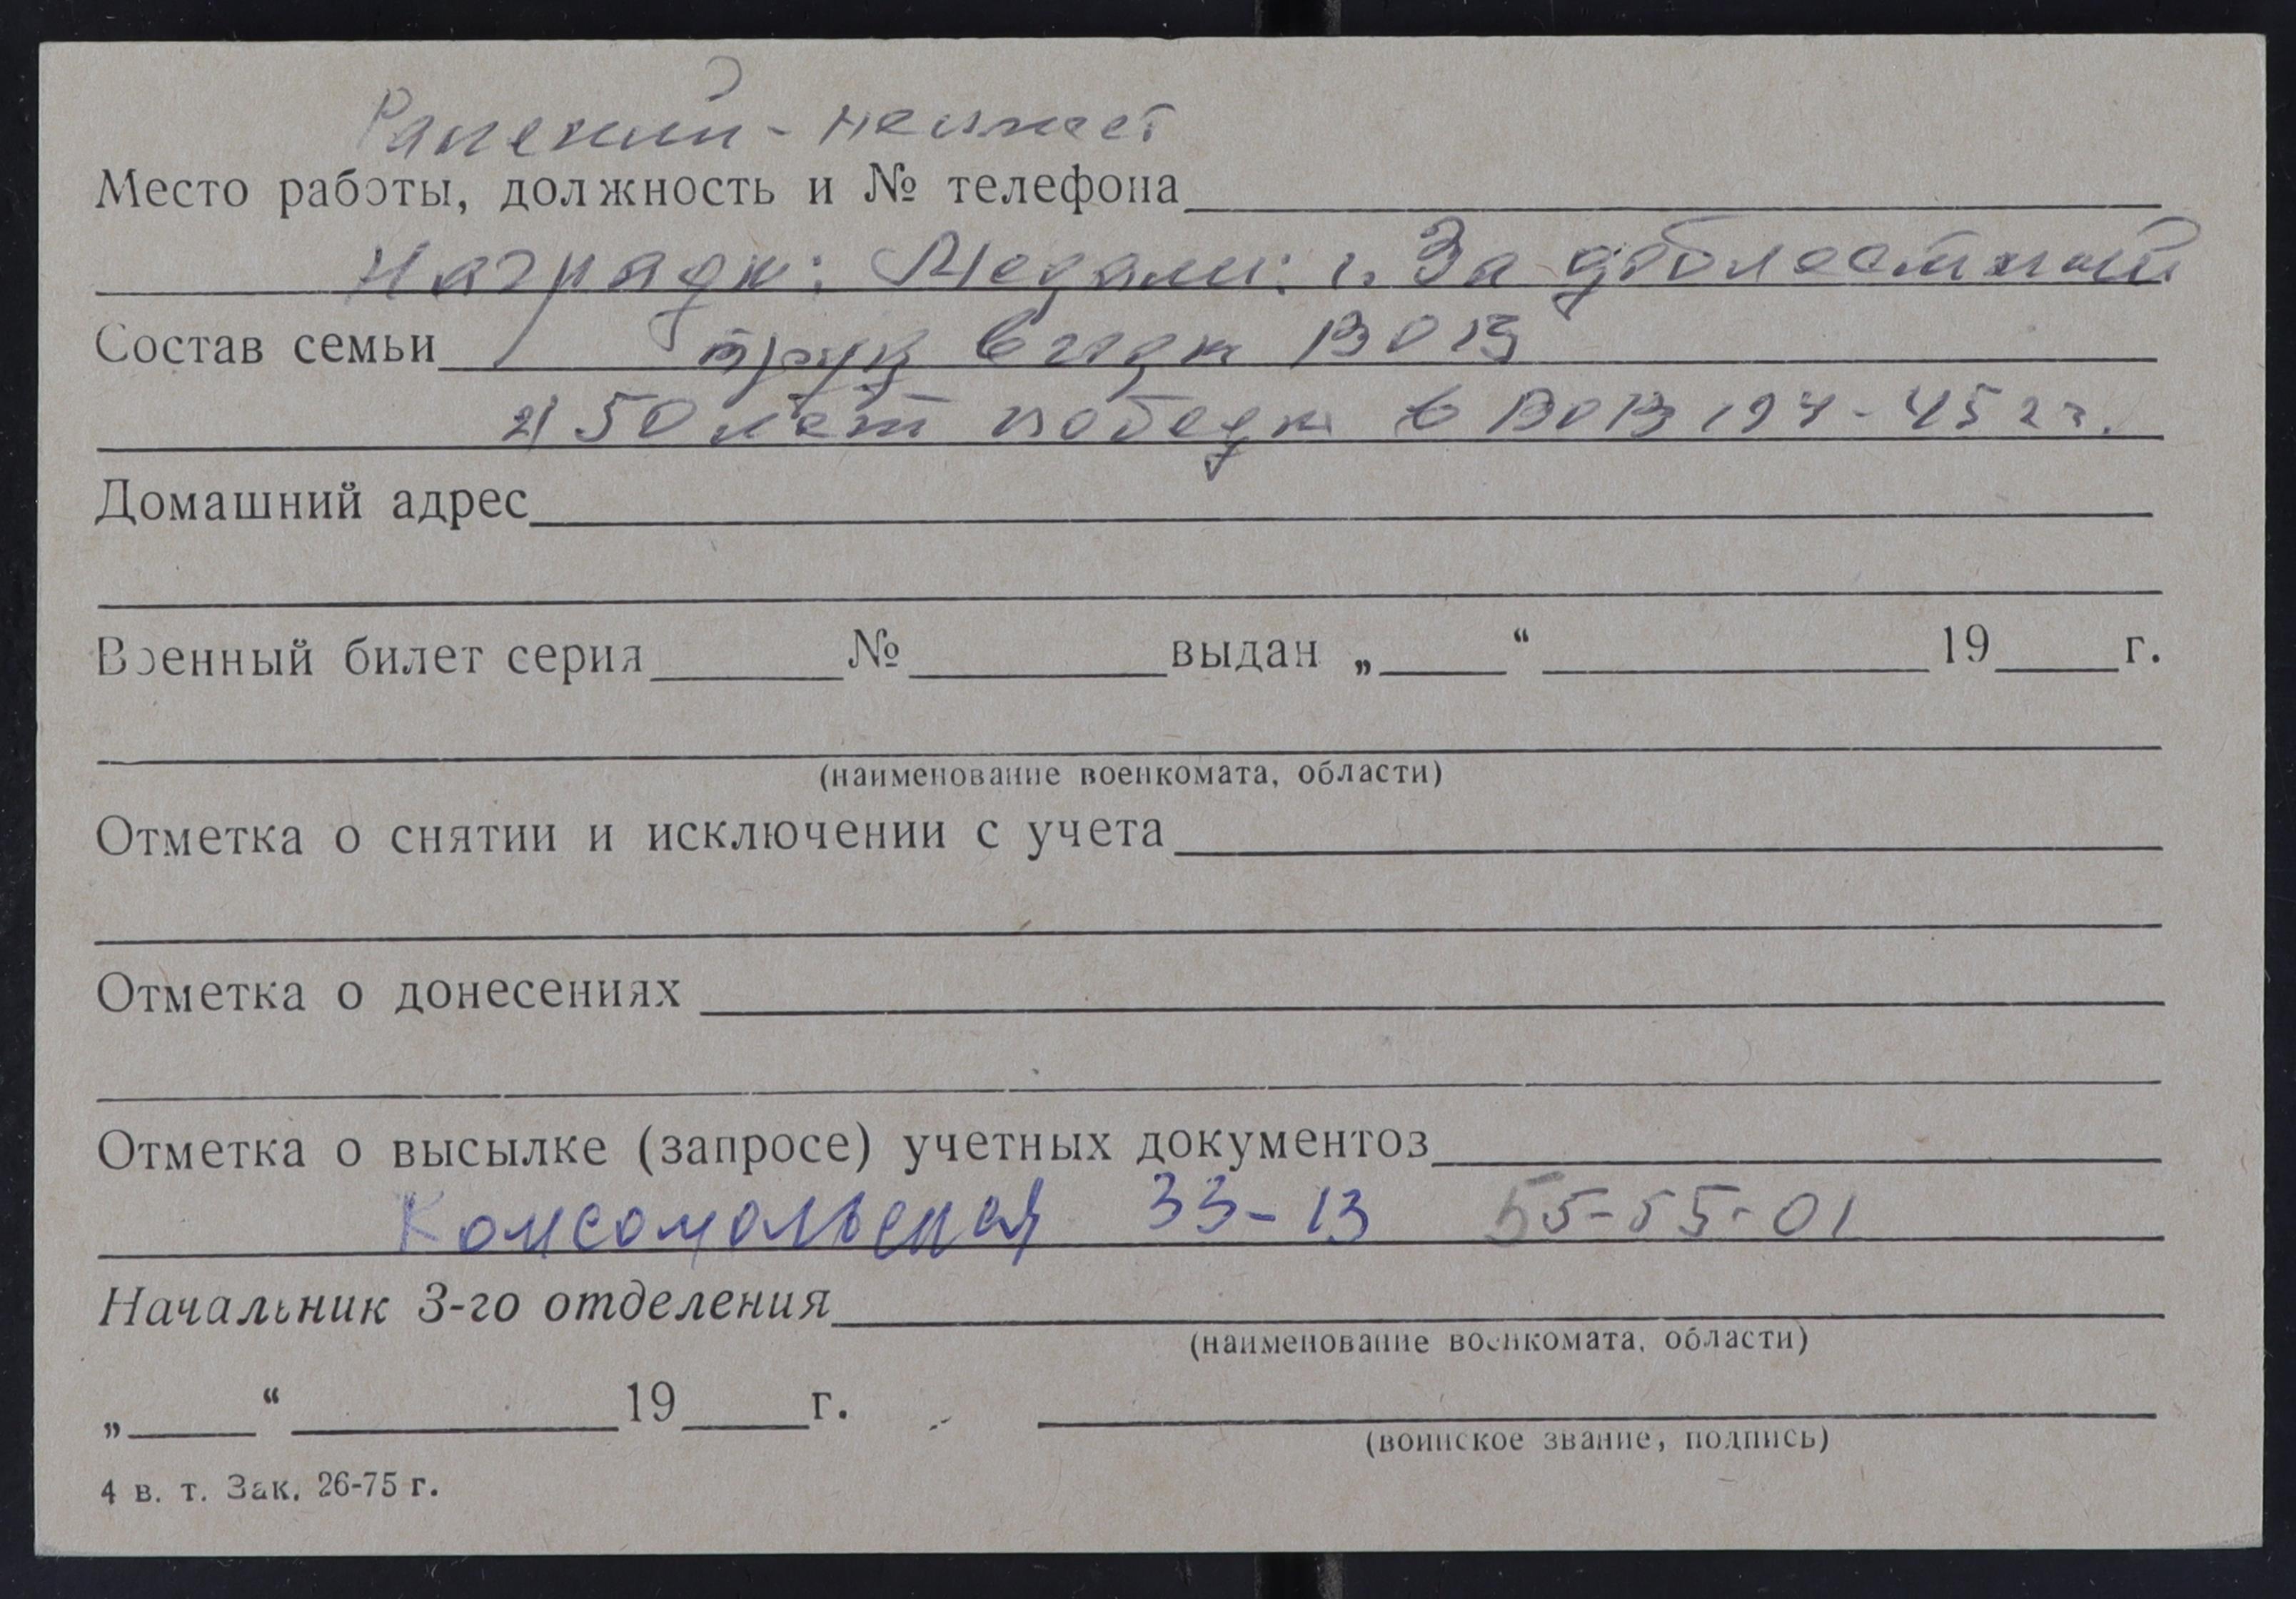 Ранений - не имеет
Место работы, должность и № телефона
Награды: Медали: 1. За доблестный
Состав семьи труд в годы ВОВ
2) 50 лет победы в ВОВ 1941-45 гг.
Домашний адрес
Военный билет серия № выдан „ “ 19 г.
(наименование военкомата, области)
Отметка о снятии и исключении с учета
Отметка о донесениях
Отметка о высылке (запросе) учетных документов
Комсомольская 33-13 55-55-01
Начальник 3-го отделения
(наименование военкомата, области)
„ “ 19 г.
(воинское звание, подпись)
4 в. т. Зак. 26-75 г.